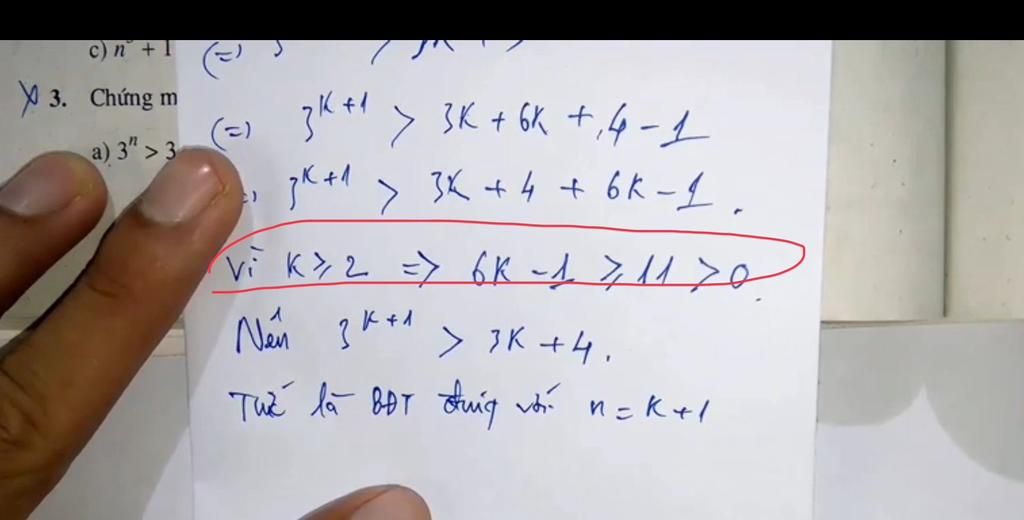 c) n³ + 1
3. Chứng m
a) 3ⁿ > 3
(=) 3^(K+1) > 3K + 6K + 4 - 1
3^(K+1) > 3K + 4 + 6K - 1.
Vì K ≥ 2 => 6K - 1 ≥ 11 > 0.
Nên 3^(K+1) > 3K + 4.
Tức là BĐT đúng với n = K + 1